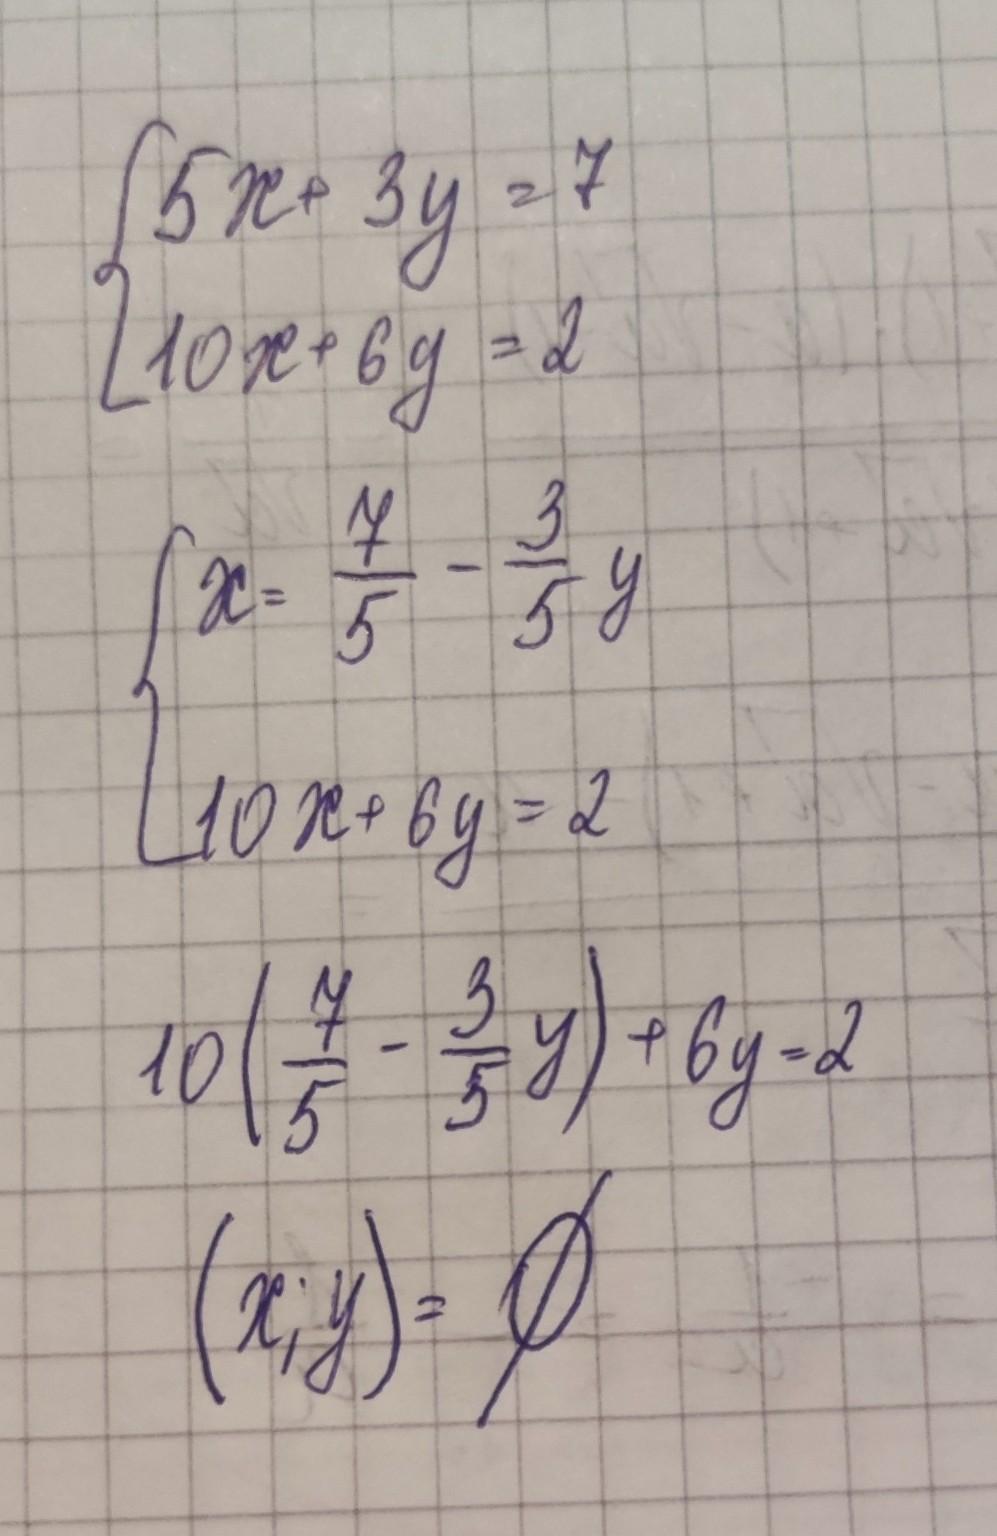 {5x + 3y = 7
10x + 6y = 2
{x = 7/5 - 3/5 y
10x + 6y = 2
10(7/5 - 3/5 y) + 6y = 2
(x; y) = ∅